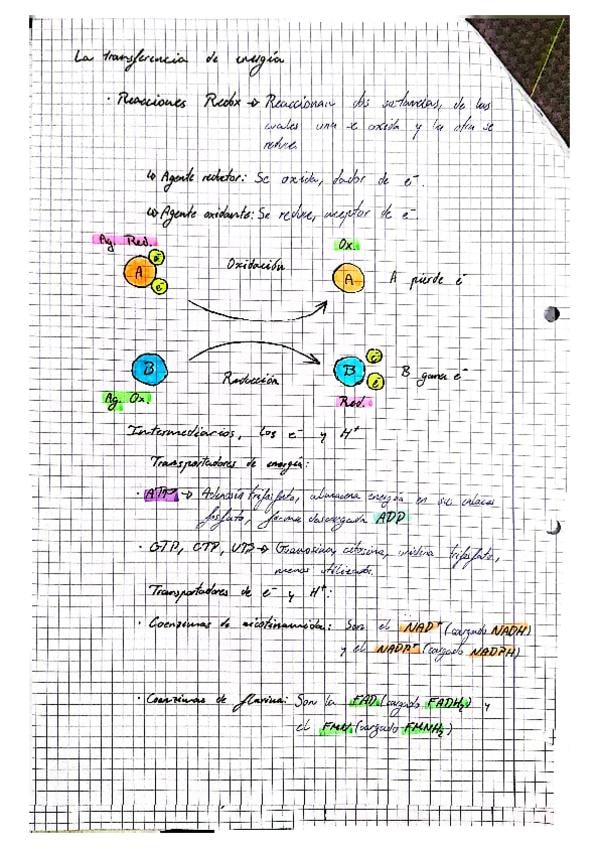 La transferencia de energía
· Reacciones Redox → Reaccionan dos sustancias, de las
cuales una se oxida y la otra se
reduce.
↳ Agente reductor: Se oxida, dador de e⁻.
↳ Agente oxidante: Se reduce, aceptor de e⁻
Ag. Red. Ox.
A e⁻ e⁻ Oxidación A A pierde e⁻
B Reducción B e⁻ e⁻ B gana e⁻
Ag. Ox. Red.
Intermediarios, los e⁻ y H⁺
Transportadores de energía:
· ATP → Adenosín trifosfato, almacena energía en sus enlaces
fosfato, forma descargada ADP
· GTP, CTP, UTP → Guanosina, citosina, uridina trifosfato,
menos utilizado.
Transportadores de e⁻ y H⁺:
· Coenzimas de nicotinamida: Son el NAD⁺ (cargado NADH)
y el NADP⁺ (cargado NADPH)
· Coenzimas de flavina: Son la FAD (cargado FADH₂) y
el FMN (cargado FMNH₂)